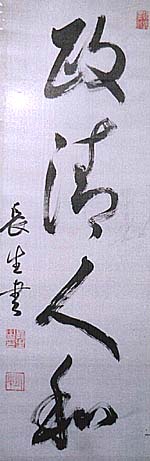 政清人和
長生書